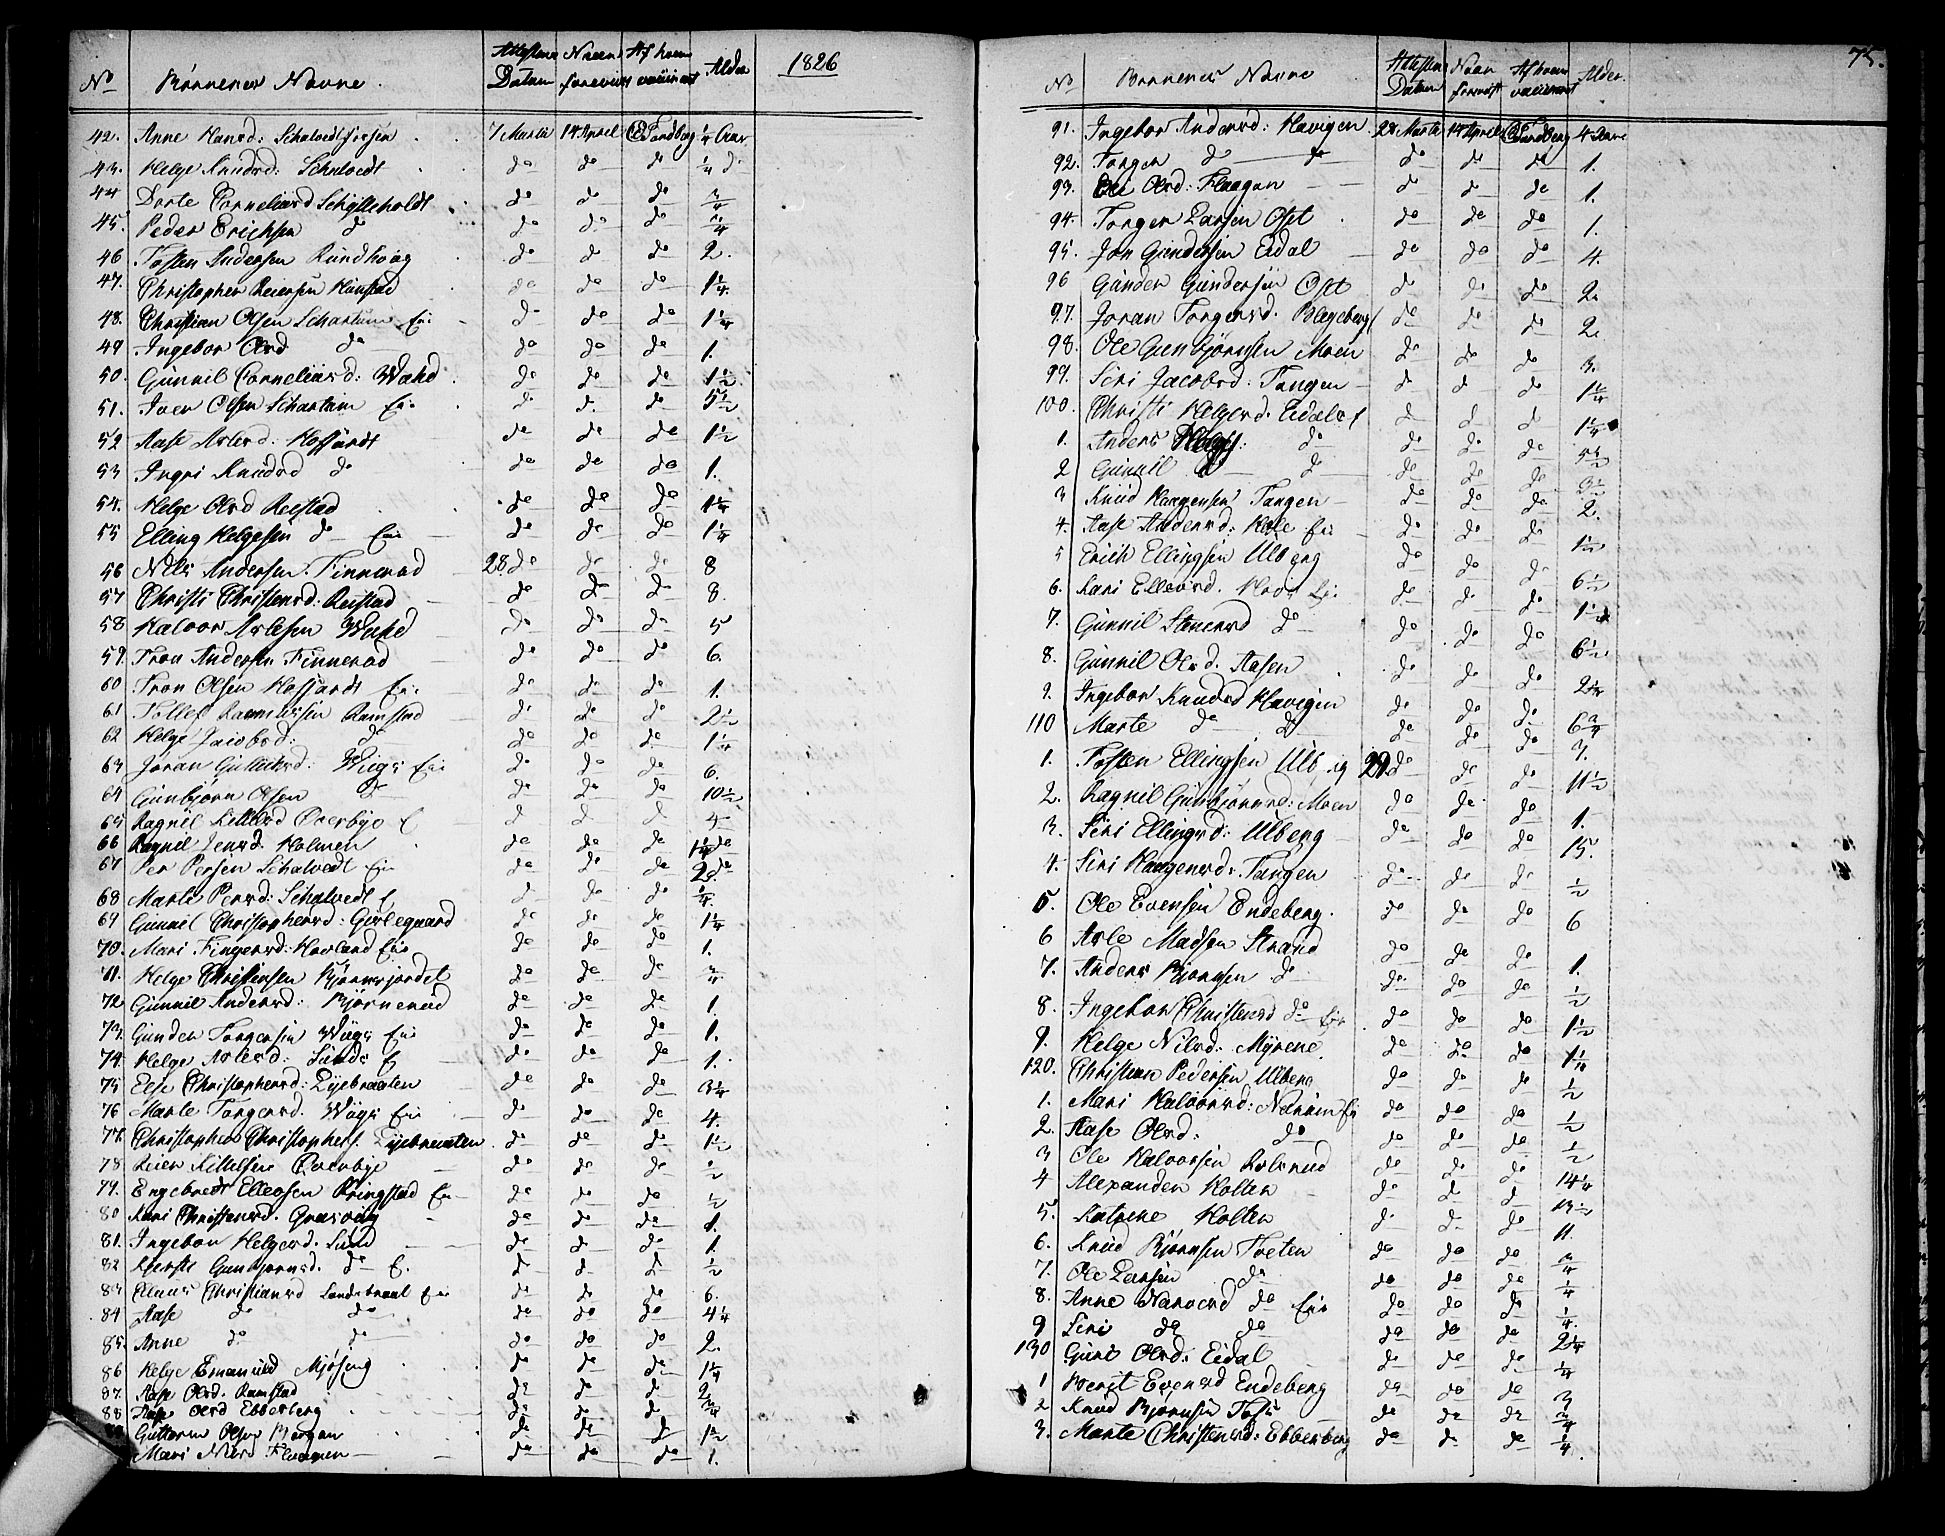 No Børnenes Navne Attestens Datum Naar foreviist Af hvem vaccineret Alder 1826
42. Anne Hansd: Schalvedt 7 Marts 14 April C Sandberg 1/4 Aar
43. Helge Knudsd: Schalvedt do do do 1/4 do
44 Dorte Corneliusd Schjelleholdt do do do 3/4
45. Peder Erichsen do do do do 3/4
46 Tosten Andersen Rundhoug do do do 2.
47. Christopher Reiersen Hanstad do do do 1 1/4
48. Christian Olsen Schartum Eie do do do 1 1/4
49 Ingebor Olsd do do do do 1.
50. Gunnil Corneliusd: Wahd do do do 1 1/2
51. Iver Olsen Schartum Eie do do do 5 1/2
52 Aase Arlesd: Hoffardt do do do 1 1/2
53 Ingri Knudsd do do do do 1.
54. Helge Olsd Reistad do do do 1 1/4
55 Elling Helgesen do Eie do do do 1 1/4
56 Nils Andersen Finnerud 28. do do do 8
57 Christi Christensd: Reistad do do do 8.
58 Halvor Arlesen Wahd do do do 5
59. Tron Andersen Finnerud do do do 6.
60 Tron Olsen Hoffardt Eie do do do 1.
61 Tollef Rasmussen Ramstad do do do 2 1/2
62 Helge Jacobsd: do do do do 1 1/4
63 Joran Gulliksd: Wiigs Eie do do do 6.
64 Gunbjørn Olsen do do do do 10 1/2
65 Ragnil Kittilsd Overbye E do do do
66 Ragnil Jensd. Holmen do do do 1 1/4 do
67 Per Persen Schalvedt Eie do do do 2. do
68 Marte Persd: Schalvedt E do do do 1/4
69 Gunnil Christophersd: Gislegaard do do do 1 1/4
70. Mari Fingersd: Hovland Eie do do do 1.
71. Helge Christensen Bjørnsjordet do do do 3/4
72. Gunnil Andersd: Bjørnerud do do do 1.
73. Gunder Torgersen Wiigs Eie do do do 1.
74. Helge Arlesd: Lunds E do do do 1.
75 Else Christophersd: Eyebraaten do do do 3 1/4
76 Marte Torgersd. Wiigs Eie do do do 4.
77. Christopher Christophers. Eyebraaten do do do 1 1/2
78. Reier Kittelsen Overbye do do do 1/2
79. Engebredt Ellevsen Ringstad Eie do do do 1/2
80 Kari Christensd. Grasvaag do do do 1.
81. Ingebor Helgesd. Lund do do do 1.
82 Kjersti Gunbjørnsd. do E. do do do 1/2
83 Christiansd Landebraat Eie do do do 6.
84 Aase do do do do do 4 1/4
85. Anne do do do do do 2.
86 Helge Emanuelsd Mjøseng do do do 1 1/4
87. Aase Olsd. Ramstad do do do
88 Aase Olsd Ebberberg do do do 3/4
Guttorm Olsen Bergan do do do 1 1/2
Mari Nilsd Flaagan do do do 1.
75.
No Børnenes Navne Attestens Datum Naar foreviist Af hvem vaccineret Alder.
91. Ingebor Andersd: Havigen 28 Marts 14 April C Sandberg 4 Aar
92. Torger do do do do do 1.
93. Eli Olsd: Flaagan do do do 1.
94. Torger Larsen Ost do do do 1.
95. Jon Gundersen Eidal do do do 4.
96 Gunder Gundersen Ost do do do 2.
97. Joran Torgersd. Bageberg do do do 2.
98. Ole Gunbjørnsen Moen do do do 3.
99. Siri Jacobsd: Tangen do do do 1 1/4
100. Christi Helgesd: Eidals E do do do 1 1/4
1. Anders Helges. do do do do 5 1/2
2 Gunnil do do do do do 3 1/2
3 Knud Haagensen Tangen do do do 2.
4. Aase Andersd: Hole Eie do do do 1 1/2
5 Erich Ellingsen Ulberg do do do 6 1/2
6. Kari Ellevsd. Hovs Ei do do do 1 1/2
7. Gunnil Stenersd do do do do 6 1/2
8. Gunnil Olsd. Aasen do do do 2 1/4
9. Ingebor Knudsd Havigen do do do 6 3/4
110 Marte do do do do do 7.
1. Tosten Ellingsen Ulberg 29. do do do 11 1/2
2. Ragnil Gunbjørnsd: Moen do do do 1.
3. Siri Ellingsd: Ulberg do do do 15.
4. Siri Haagensd: Tangen do do do 1/2
5. Ole Evensen Endeberg. do do do 6
6 Arle Madsen Strand do do do 1.
7. Anders Bjørnsen do do do do 1/2
8. Ingebor Christensd do Eie do do do 1 1/2
9. Helge Nilsd: Myrene. do do do
120. Christian Pedersen Ulberg do do do 1/2
1. Mari Halvorsd: Narum Ei do do do 1/2
2. Aase Olsd: do do do do 1/2
3 Ole Halvorsen Rolsrud do do do 14 1/4
4 Alexander Holter do do do 13 1/2
5. Holter do do do 11.
6. Knud Bjørnsen Tveten do do do 3/4
7. Ole Larsen do do do do 1/4
8. Anne do Eie do do do 1/4
9 Siri do do do do do 2 1/4
130 Guri Olsd: Eidal do do do 1/4
1 Berit Evensd Endeberg do do do 3
2 Knud Bjørnsen do do do 3/4
3. Marte Christensd: Ebberberg do do do 1/4